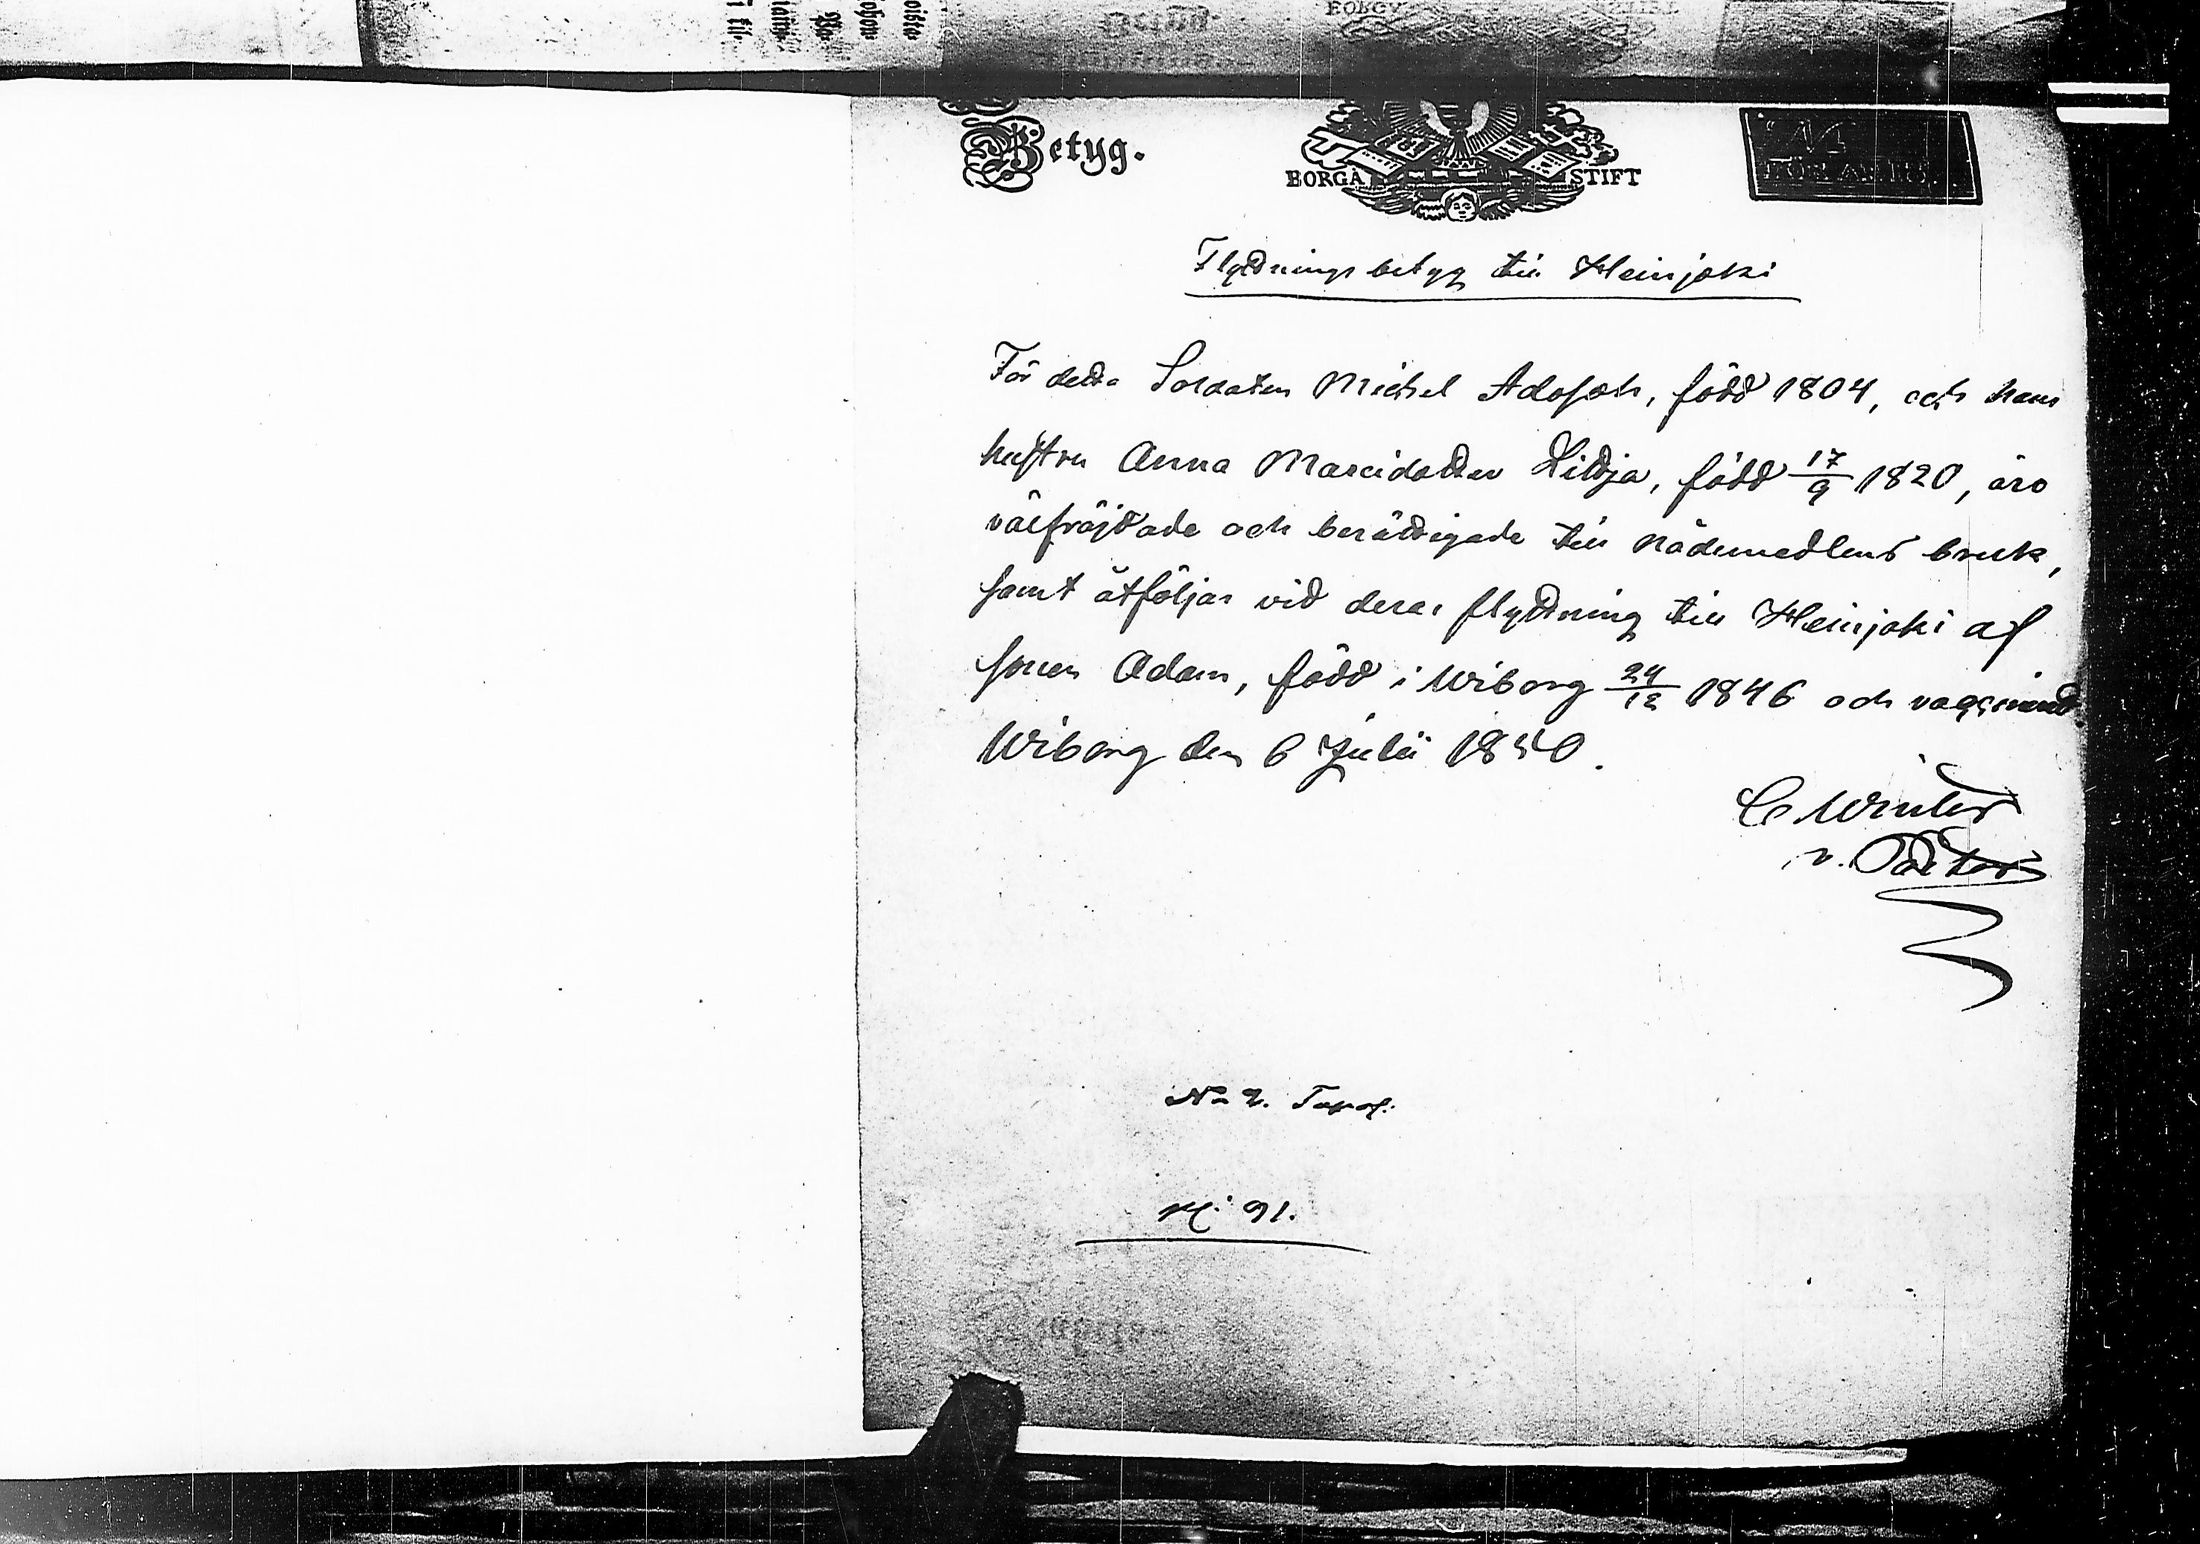 Betyg.
BORGÅ STIFT
FÖR ÅR 18
Flyttningsbetyg till Heinjoki
För detta Soldaten Michel Adolfsoh, född 1804, och hans
hustru Anna Marcidotter Hittja, född 17/9 1820, äro
välfräjdade och berättigade till nådemedlens bruk,
samt åtföljas vid deras flyttning till Heinjoki af
sonen Adam, född i Wiborg 24/12 1846 och vaccinerad.
Wiborg den 6 Julii 1850.
C Winter
v. Pastor
No 2.
91.